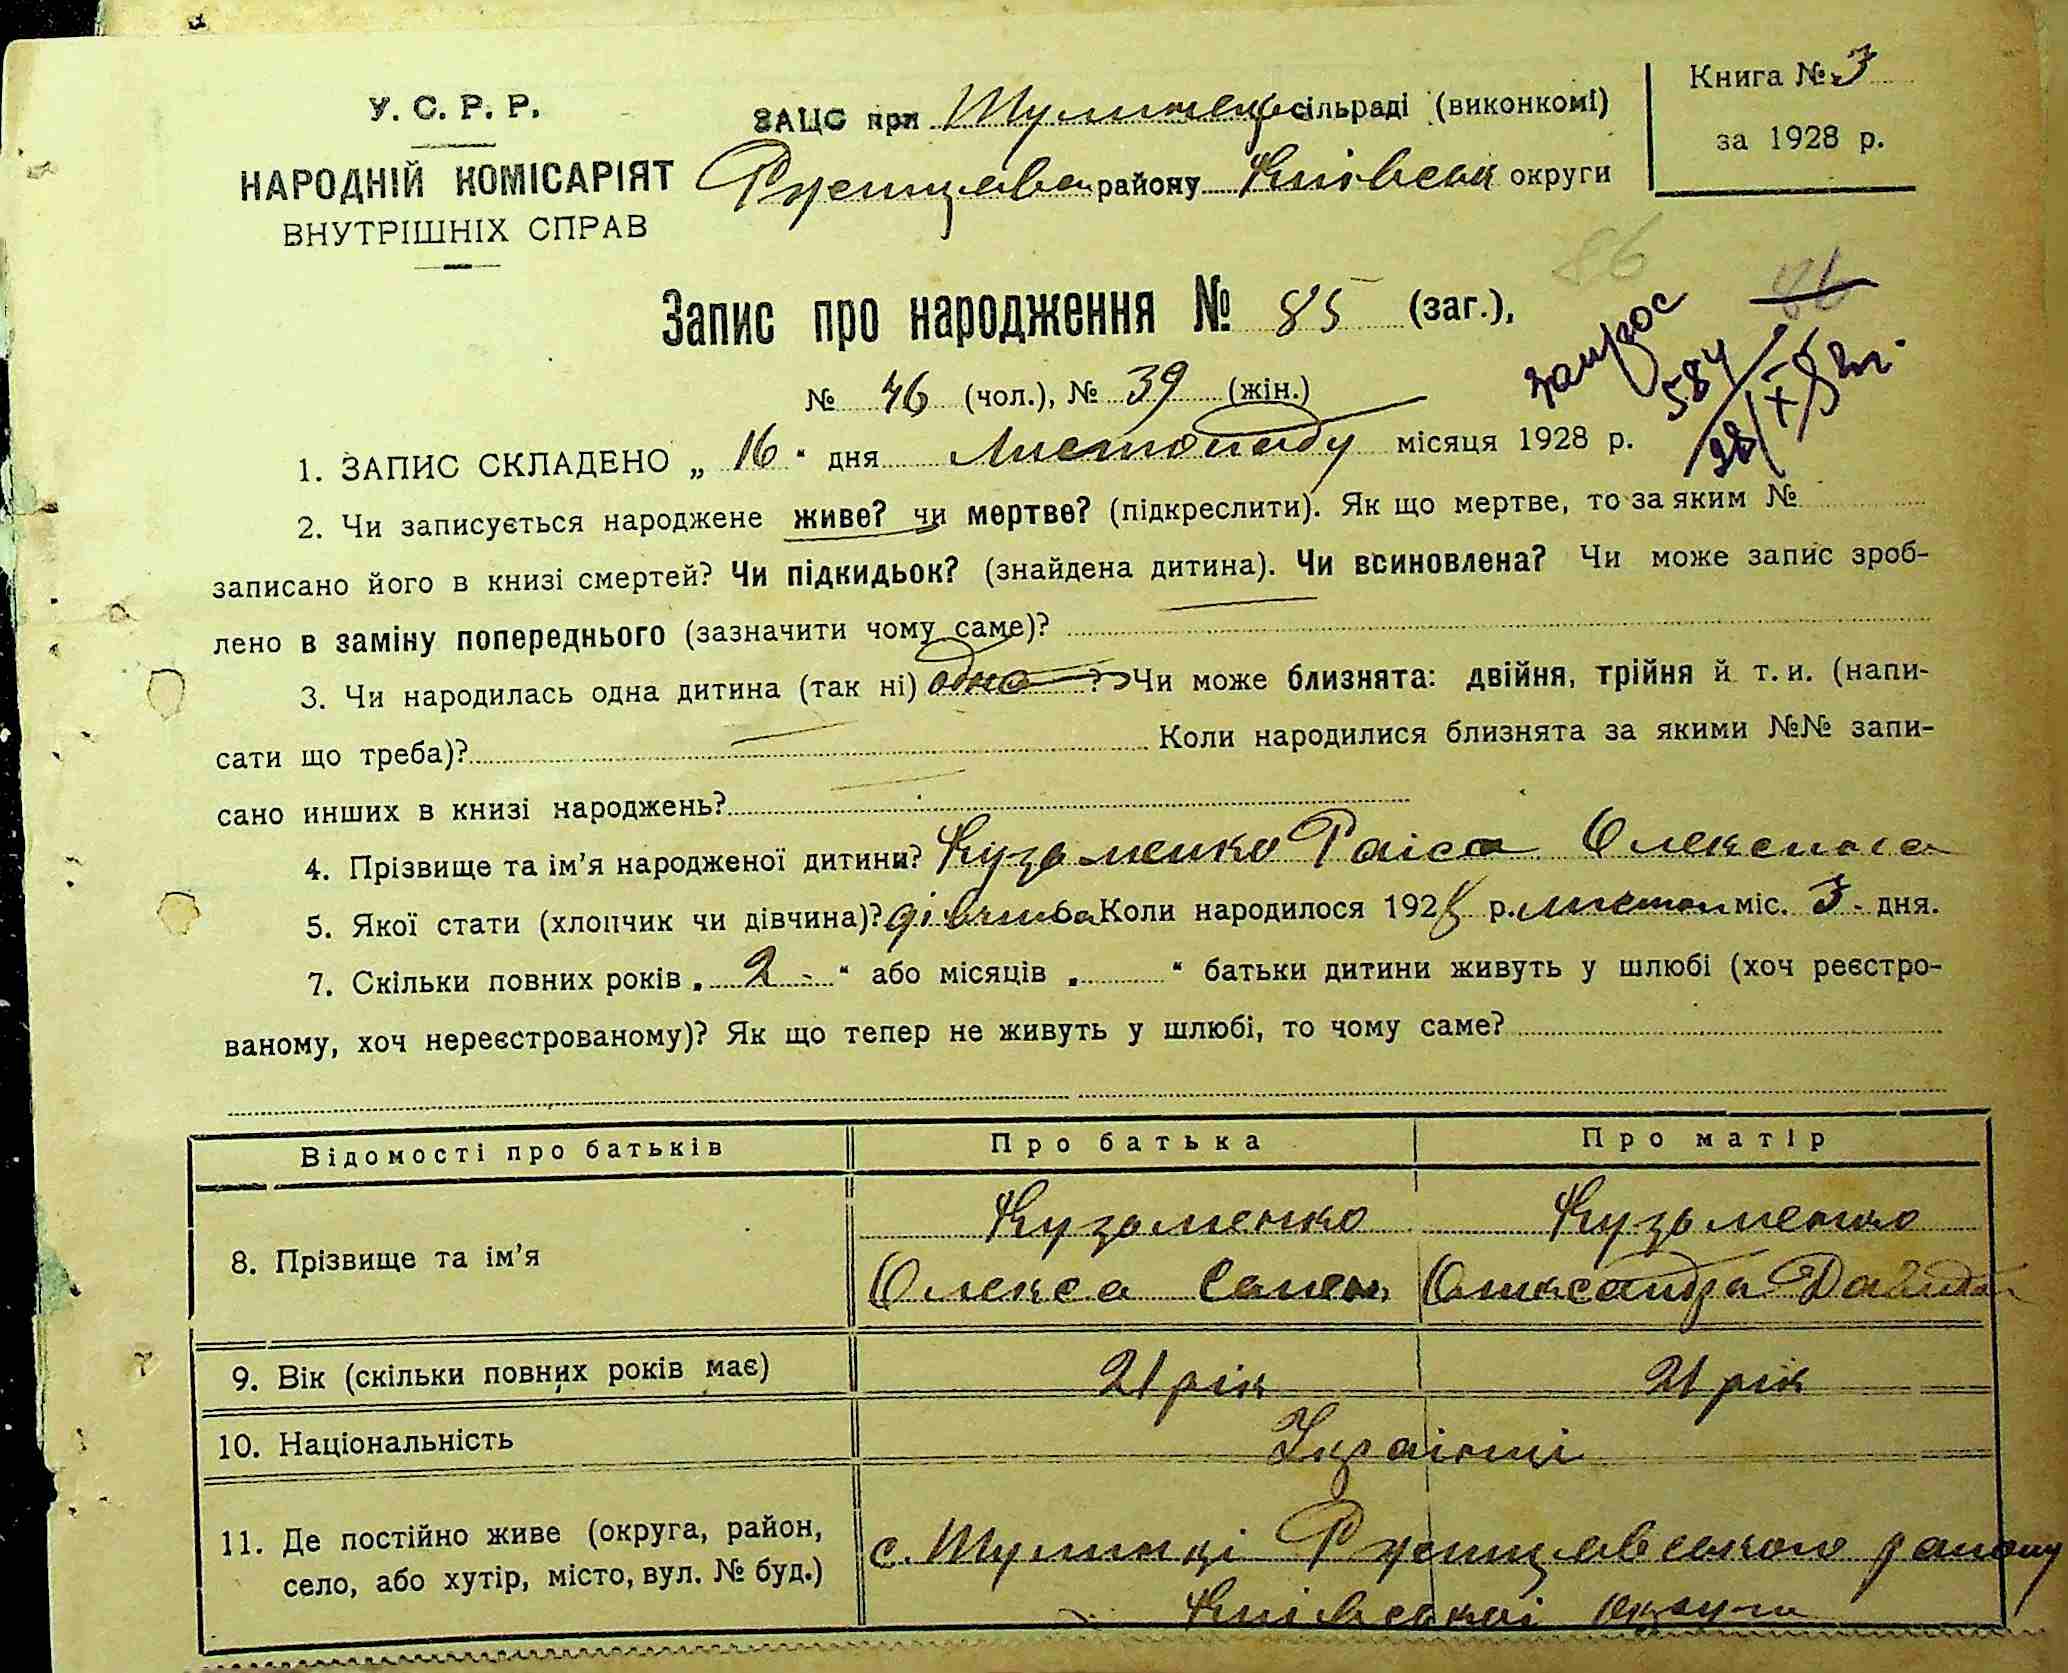 У. С. Р. Р.
НАРОДНІЙ КОМІСАРІЯТ
ВНУТРІШНІХ СПРАВ
ЗАЦС при сільраді (виконкомі)
району Київськ округи
Книга № 3
за 1928 р.
86
86
Запис про народження № 85 (заг.),
запрос
584
28/X
№ 46 (чол.), № 39 (жін.)
1. ЗАПИС СКЛАДЕНО „ 16 “ дня Листопаду місяця 1928 р.
2. Чи записується народжене живе? чи мертве? (підкреслити). Як що мертве, то за яким №
записано його в книзі смертей? Чи підкидьок? (знайдена дитина). Чи всиновлена? Чи може запис зроб-
лено в заміну попереднього (зазначити чому саме)?
3. Чи народилась одна дитина (так ні) одна ? Чи може близнята: двійня, трійня й т. и. (напи-
сати що треба)? Коли народилися близнята за якими №№ запи-
сано инших в книзі народжень?
4. Прізвище та ім’я народженої дитини? Кузьменко Раіса Олексієва
5. Якої стати (хлопчик чи дівчина)? дівчина Коли народилося 1928 р. листоп міс. 3 дня.
7. Скільки повних років „ 2 “ або місяців „ “ батьки дитини живуть у шлюбі (хоч реєстро-
ваному, хоч нереєстрованому)? Як що тепер не живуть у шлюбі, то чому саме?
Відомості про батьків Про батька Про матір
8. Прізвище та ім’я Кузьменко Кузьменко
Олекса Семен Олександра Давидов
9. Вік (скільки повних років має) 21 рік 21 рік
10. Національність Українці
11. Де постійно живе (округа, район,
село, або хутір, місто, вул. № буд.)
с. району
Київської округи